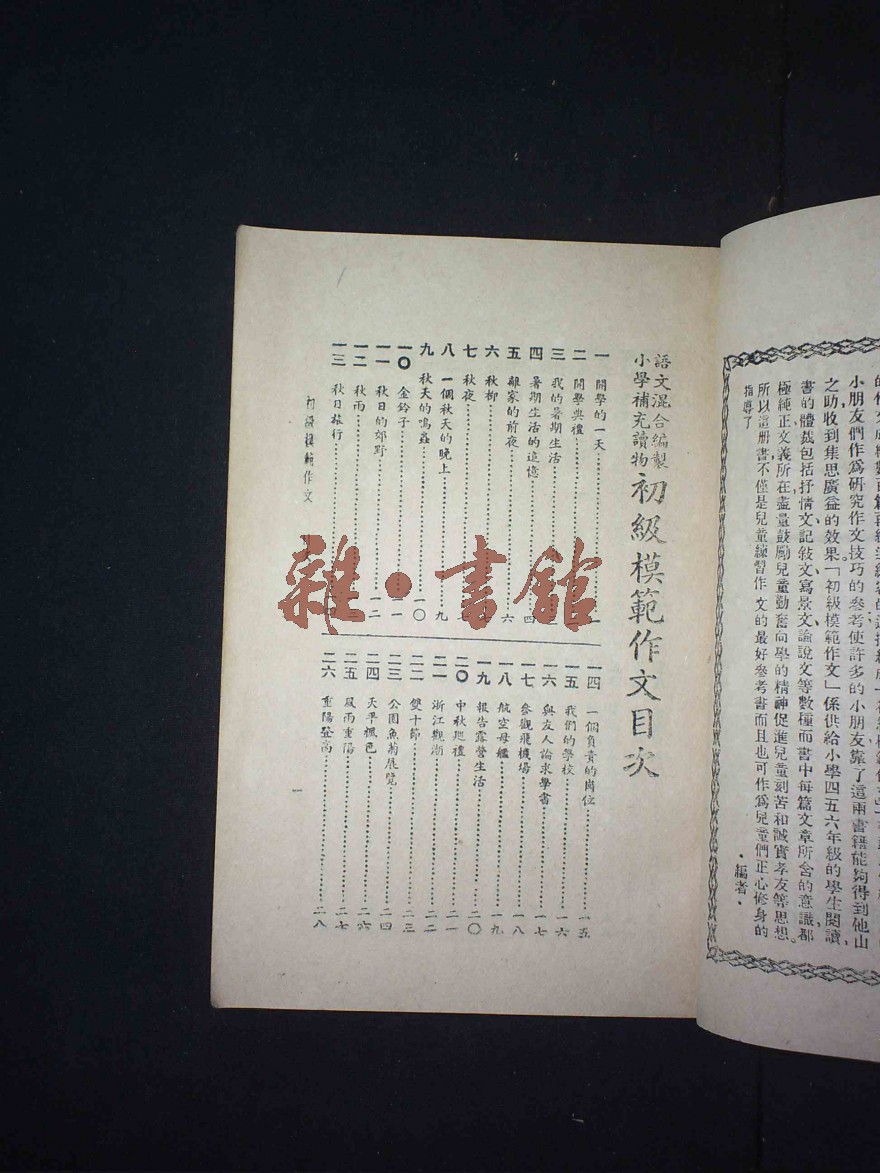 小朋友們作爲研究作文技巧的參考使許多的小朋友靠了這兩書籍能夠得到他山
之助收到集思廣益的效果「初級模範作文」係供給小學四五六年級的學生閱讀
書的體裁包括抒情文記敍文寫景文論說文等數種而書中每篇文章所含的意識都
極純正文義所在盡量鼓勵兒童勤奮向學的精神促進兒童刻苦和誠實孝友等思想
所以這册書不僅是兒童練習作文的最好參考書而且也可作爲兒童們正心修身的
指導了
·編者·
語文混合編製
小學補充讀物
初級模範作文目次
一 開學的一天
二 開學典禮
三 我的暑期生活
四 暑期生活的追憶 四
五 離家的前夜
六 秋柳 六
七 秋夜
八 一個秋天的晚上
九 秋天的鳴蟲 九
一〇 金鈴子 一〇
一一 秋日的郊野 一一
一二 秋雨 一二
一三 秋日旅行
一四 一個負責的崗位 一五
一五 我們的學校 一六
一六 與友人論求學書 一七
一七 參觀飛機場 一八
一八 航空母艦 一九
一九 報告露營生活 二〇
二〇 中秋巡禮 二一
二一 浙江觀潮 二二
二二 雙十節 二三
二三 公園魚菊展覽 二四
二四 天平楓色 二六
二五 風雨重陽 二七
二六 重陽登高 二八
初級模範作文
一
雜·書館